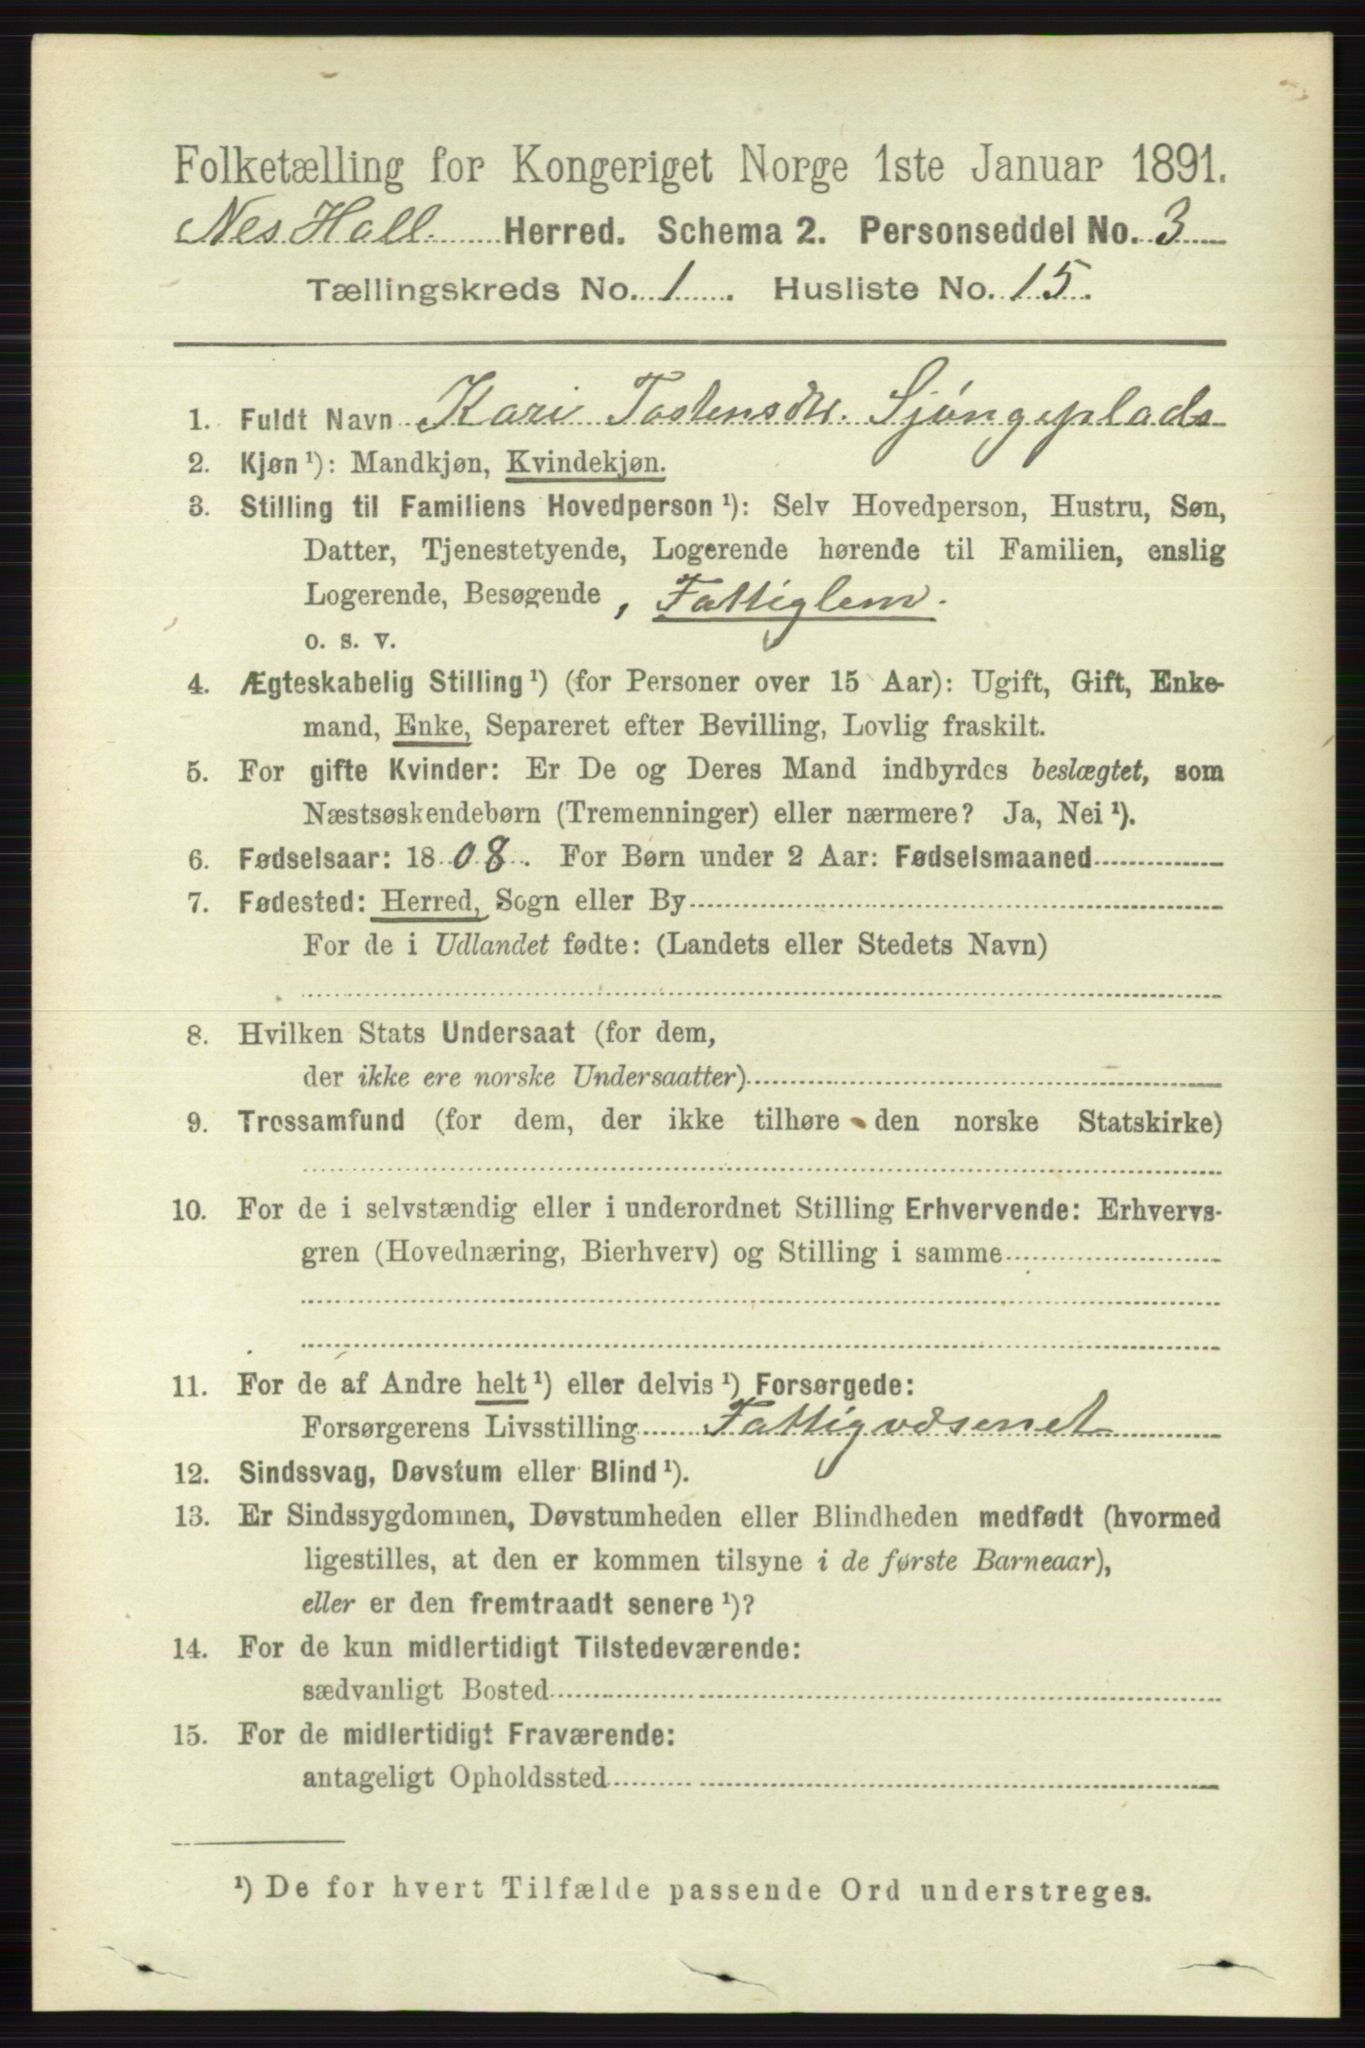 Folketælling for Kongeriget Norge 1ste Januar 1891.
Nes Hall. Herred. Schema 2. Personseddel No. 3
Tællingskreds No. 1. Husliste No. 15.
1. Fuldt Navn Kari Tostensdtr. Sjøngeplads
2. Kjøn ¹): Mandkjøn, Kvindekjøn.
3. Stilling til Familiens Hovedperson ¹): Selv Hovedperson, Hustru, Søn,
Datter, Tjenestetyende, Logerende hørende til Familien, enslig
Logerende, Besøgende , Fattiglem.
o. s. v.
4. Ægteskabelig Stilling ¹) (for Personer over 15 Aar): Ugift, Gift, Enke-
mand, Enke, Separeret efter Bevilling, Lovlig fraskilt.
5. For gifte Kvinder: Er De og Deres Mand indbyrdes beslægtet, som
Næstsøskendebørn (Tremenninger) eller nærmere? Ja, Nei ¹).
6. Fødselsaar: 1808. For Børn under 2 Aar: Fødselsmaaned
7. Fødested: Herred, Sogn eller By
For de i Udlandet fødte: (Landets eller Stedets Navn)
8. Hvilken Stats Undersaat (for dem,
der ikke ere norske Undersaatter)
9. Trossamfund (for dem, der ikke tilhøre den norske Statskirke)
10. For de i selvstændig eller i underordnet Stilling Erhvervende: Erhvervs-
gren (Hovednæring, Bierhverv) og Stilling i samme
11. For de af Andre helt ¹) eller delvis ¹) Forsørgede:
Forsørgerens Livsstilling Fattigvæsenet
12. Sindssvag, Døvstum eller Blind ¹).
13. Er Sindssygdommen, Døvstumheden eller Blindheden medfødt (hvormed
ligestilles, at den er kommen tilsyne i de første Barneaar),
eller er den fremtraadt senere ¹)?
14. For de kun midlertidigt Tilstedeværende:
sædvanligt Bosted
15. For de midlertidigt Fraværende:
antageligt Opholdssted
¹) De for hvert Tilfælde passende Ord understreges.